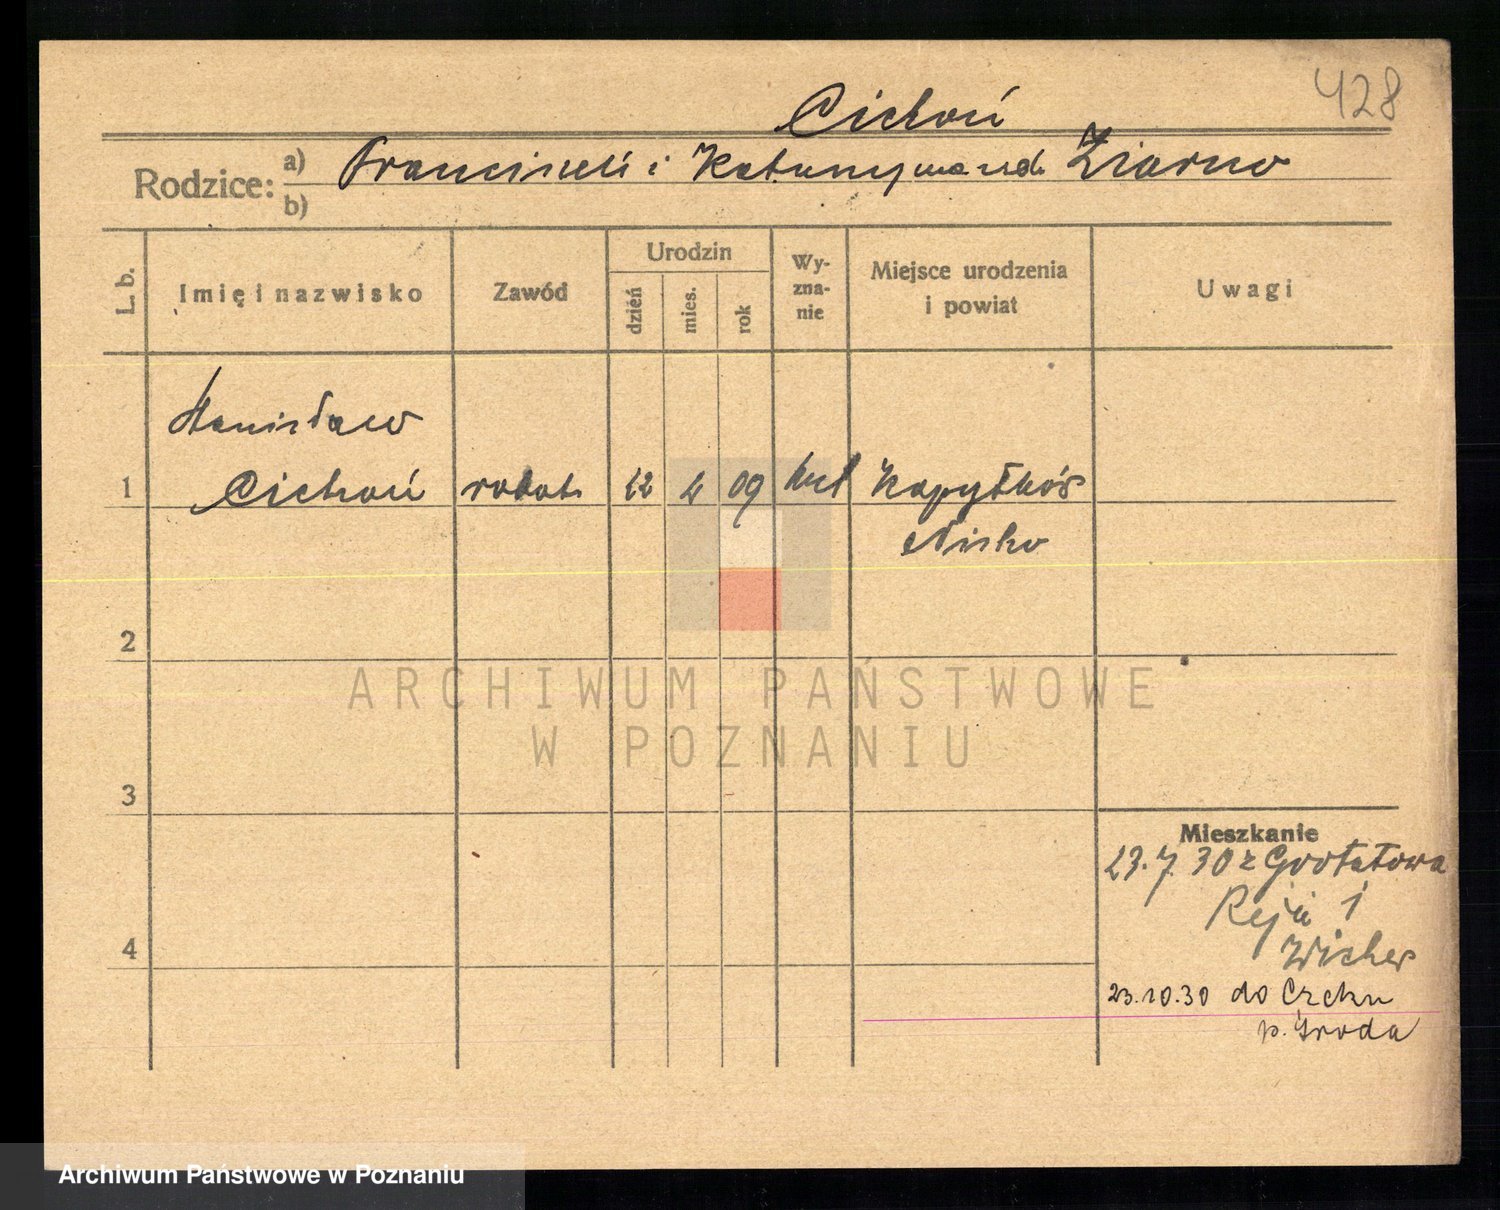 428
Cichoń
Rodzice: a) Franciszek i Katarzyna ur. Ziarno
b)
L. b.
Imię i nazwisko
Zawód
Urodzin
dzień
mies.
rok
Wy-
zna-
nie
Miejsce urodzenia
i powiat
Uwagi
Stanisław
1 Cichoń robot. 12 4 09 kat
Nisko
2
ARCHIWUM PAŃSTWOWE
W POZNANIU
3
Mieszkanie
23.7.30 z
Reja 1
Wicher
4
23.10.30 do
p. Środa
Archiwum Państwowe w Poznaniu